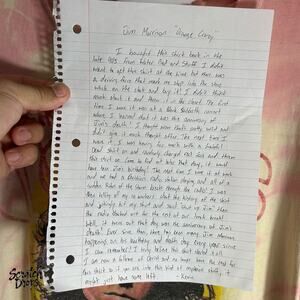 Jim Morrison "Orange Crazy"
I bought this shirt back in the
late 90s from Foster and Stuff. I didn't
want to get this shirt at the time but there was
a driving force that made me step into the store
which on the shirt and buy it! I didn't think
much about it and threw it in the closet. The first
time I wore it was at a Black Sabbath concert
where I learned that it was the anniversary of
Jim's death! I thought that was pretty wild and
didn't give it much thought after. The next time I
wore it I was having fun with a Grateful
Dead shirt on and randomly changed that shirt and threw
this shirt on. Come to find out later that day, it would
have been Jim's birthday! The next time I wore it at work
and we had a Doors radio station playing and all of a
sudden Riders of the Storm beats through the radio! I was
then telling of my co-workers about the history of this shirt
and jokingly hit my shirt and said "what up Jim" then
the radio blanked out for the rest of our work break!
Well, it turns out that day was the anniversary of Jim's
death! Ever since then, there has been many Jim Morrison
happenings on his birthday and death day. Every year since
I am now a believer of Christ and no longer have the need for
this shirt so if you are into this kind of
might just have some left
- Kevin
Scratch
Drops